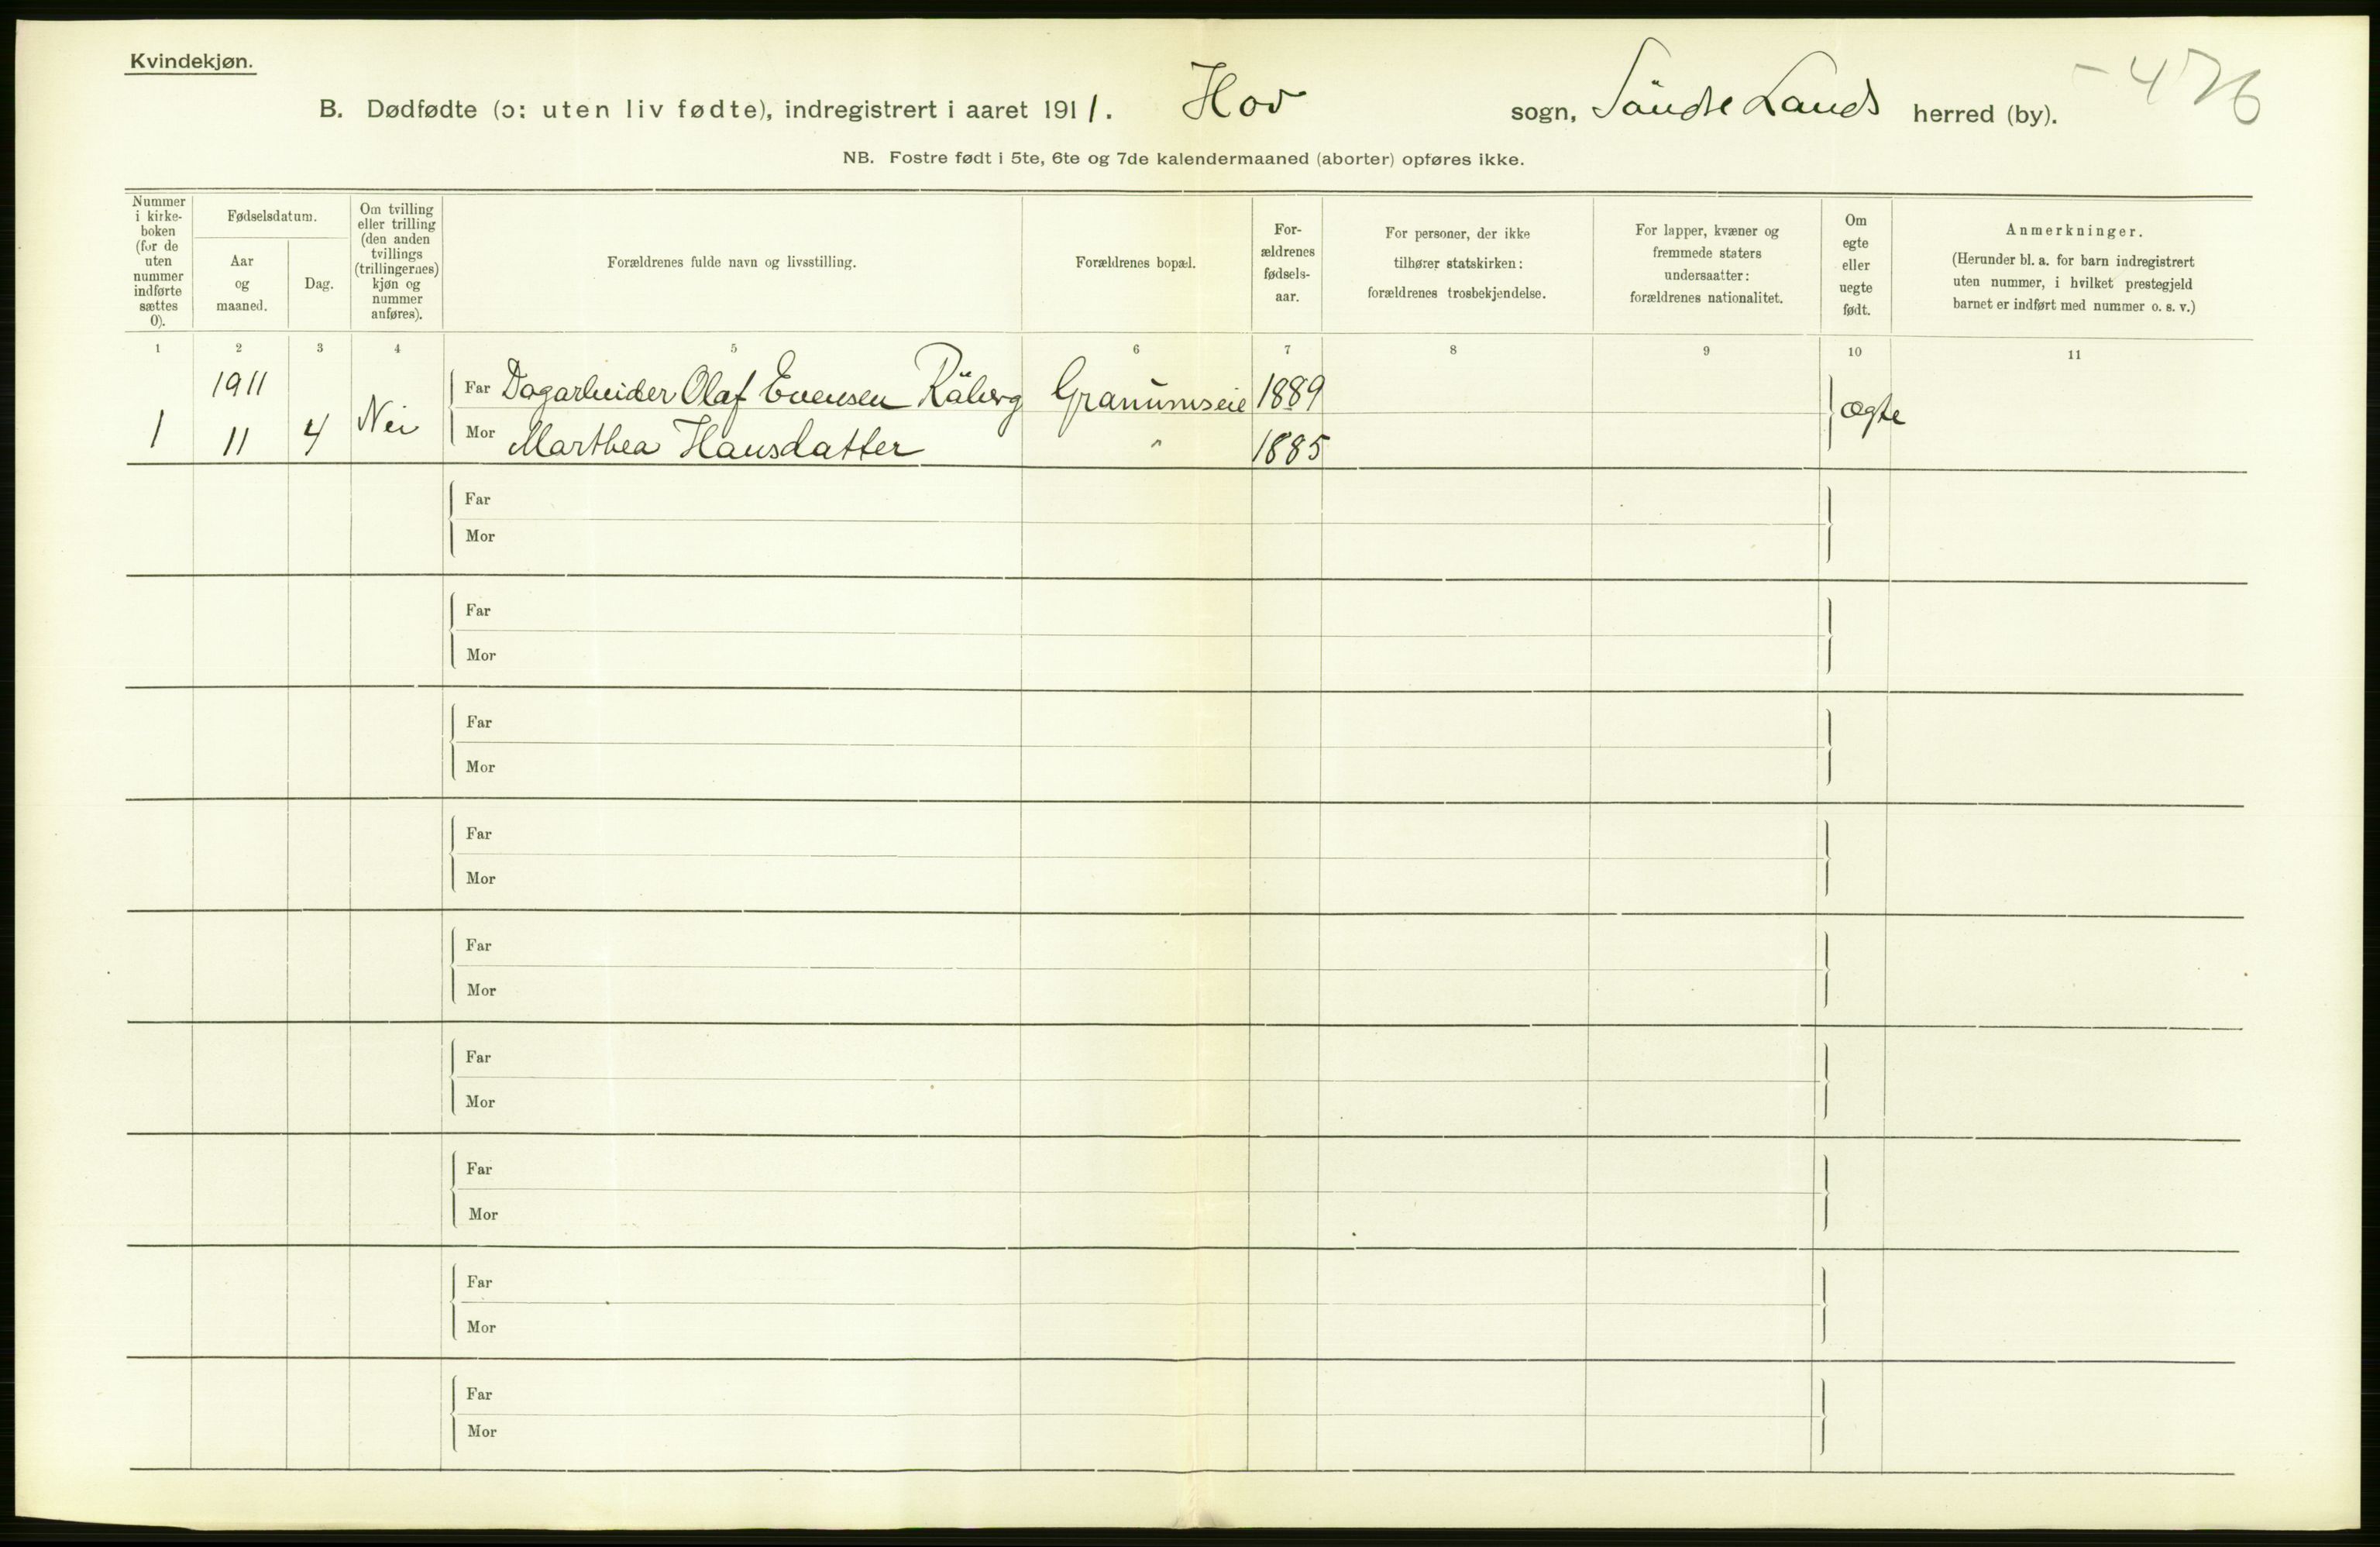 Kvindekjøn.
B. Dødfødte (ɔ: uten liv fødte), indregistrert i aaret 1911. Hov sogn, Søndre Lands herred (by).
- 476
NB. Fostre født i 5te, 6te og 7de kalendermaaned (aborter) opføres ikke.
Nummer
i kirke-
boken
(for de
uten
nummer
indførte
sættes
0).
Fødselsdatum.
Aar
og
maaned.
Dag.
Om tvilling
eller trilling
(den anden
tvillings
(trillingernes)
kjøn og
nummer
anføres).
Forældrenes fulde navn og livsstilling.
Forældrenes bopæl.
For-
ældrenes
fødsels-
aar.
For personer, der ikke
tilhører statskirken:
forældrenes trosbekjendelse.
For lapper, kvæner og
fremmede staters
undersaatter:
forældrenes nationalitet.
Om
egte
eller
uegte
født.
Anmerkninger.
(Herunder bl. a. for barn indregistrert
uten nummer, i hvilket prestegjeld
barnet er indført med nummer o. s. v.)
1 2 3 4 5 6 7 8 9 10 11
1911 Far Dagarbeider Olaf Evensen Råberg Granumseie 1889
1 11 4 Nei Mor Marthea Hansdatter " 1885 ægte
Far
Mor
Far
Mor
Far
Mor
Far
Mor
Far
Mor
Far
Mor
Far
Mor
Far
Mor
Far
Mor